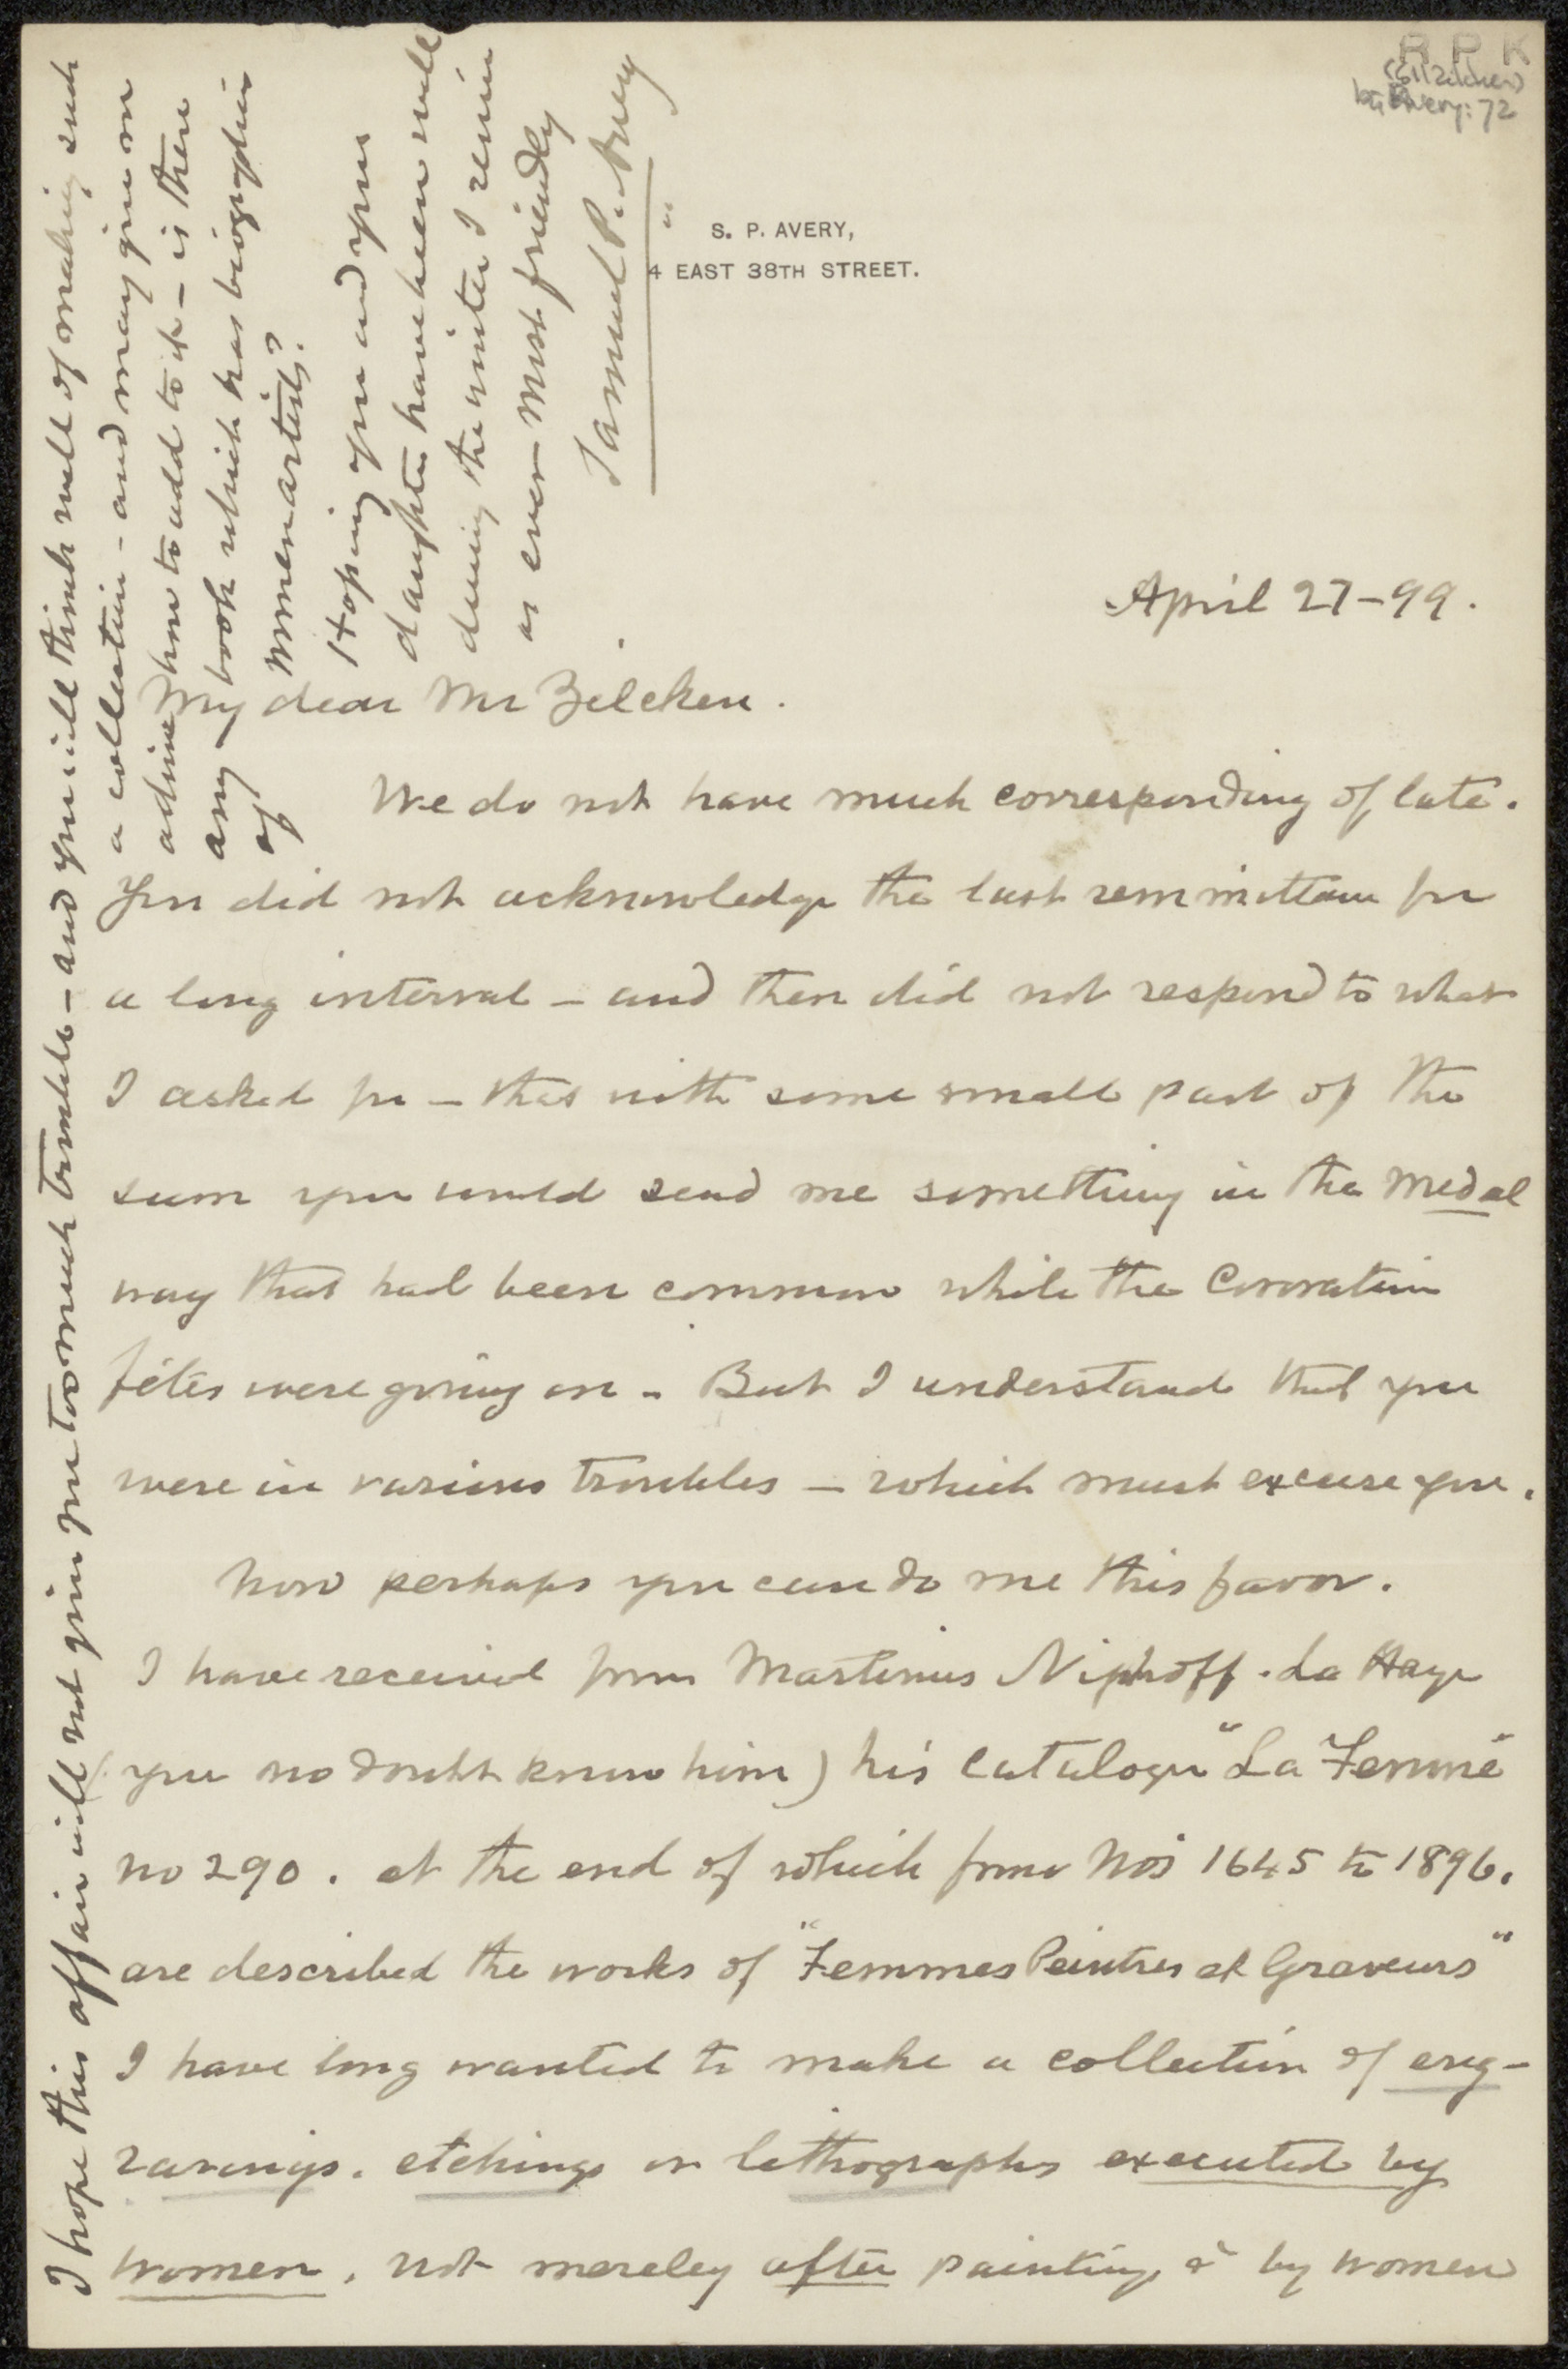 R P K
(Zilcken)
bij Avery: 72
S. P. AVERY,
4 EAST 38TH STREET.
April 27-99.
My dear Mr Zilcken.
We do not have much corresponding of late.
You did not acknowledge the last remmittance for
a long interval - and then did not respond to what
I asked for - that with some small part of the
sum you would send me something in the Medal
way that had been common while the Coronation
fêtes were going on - But I understand that you
were in various troubles - which must excuse you.
Now perhaps you can do me this favor.
I have received from Martinus Niphoff. La Haye
(you no doubt know him) his Catalogue "La Femme"
no 290. at the end of which from Nos 1645 to 1896.
are described the works of "Femmes Peintres et Graveurs"
I have long wanted to make a collection of eng-
ravings. etchings or lithographs executed by
women, not mereley after painting & by women
I hope this affair will not give you too much trouble - and you will think well of making such
a collection - and may give me
advice how to add to it - is there
any book which has biographies
of women artists?
Hoping you and your
daughter have been well
during the winter I remain
as ever most friendly
Samuel P. Avery